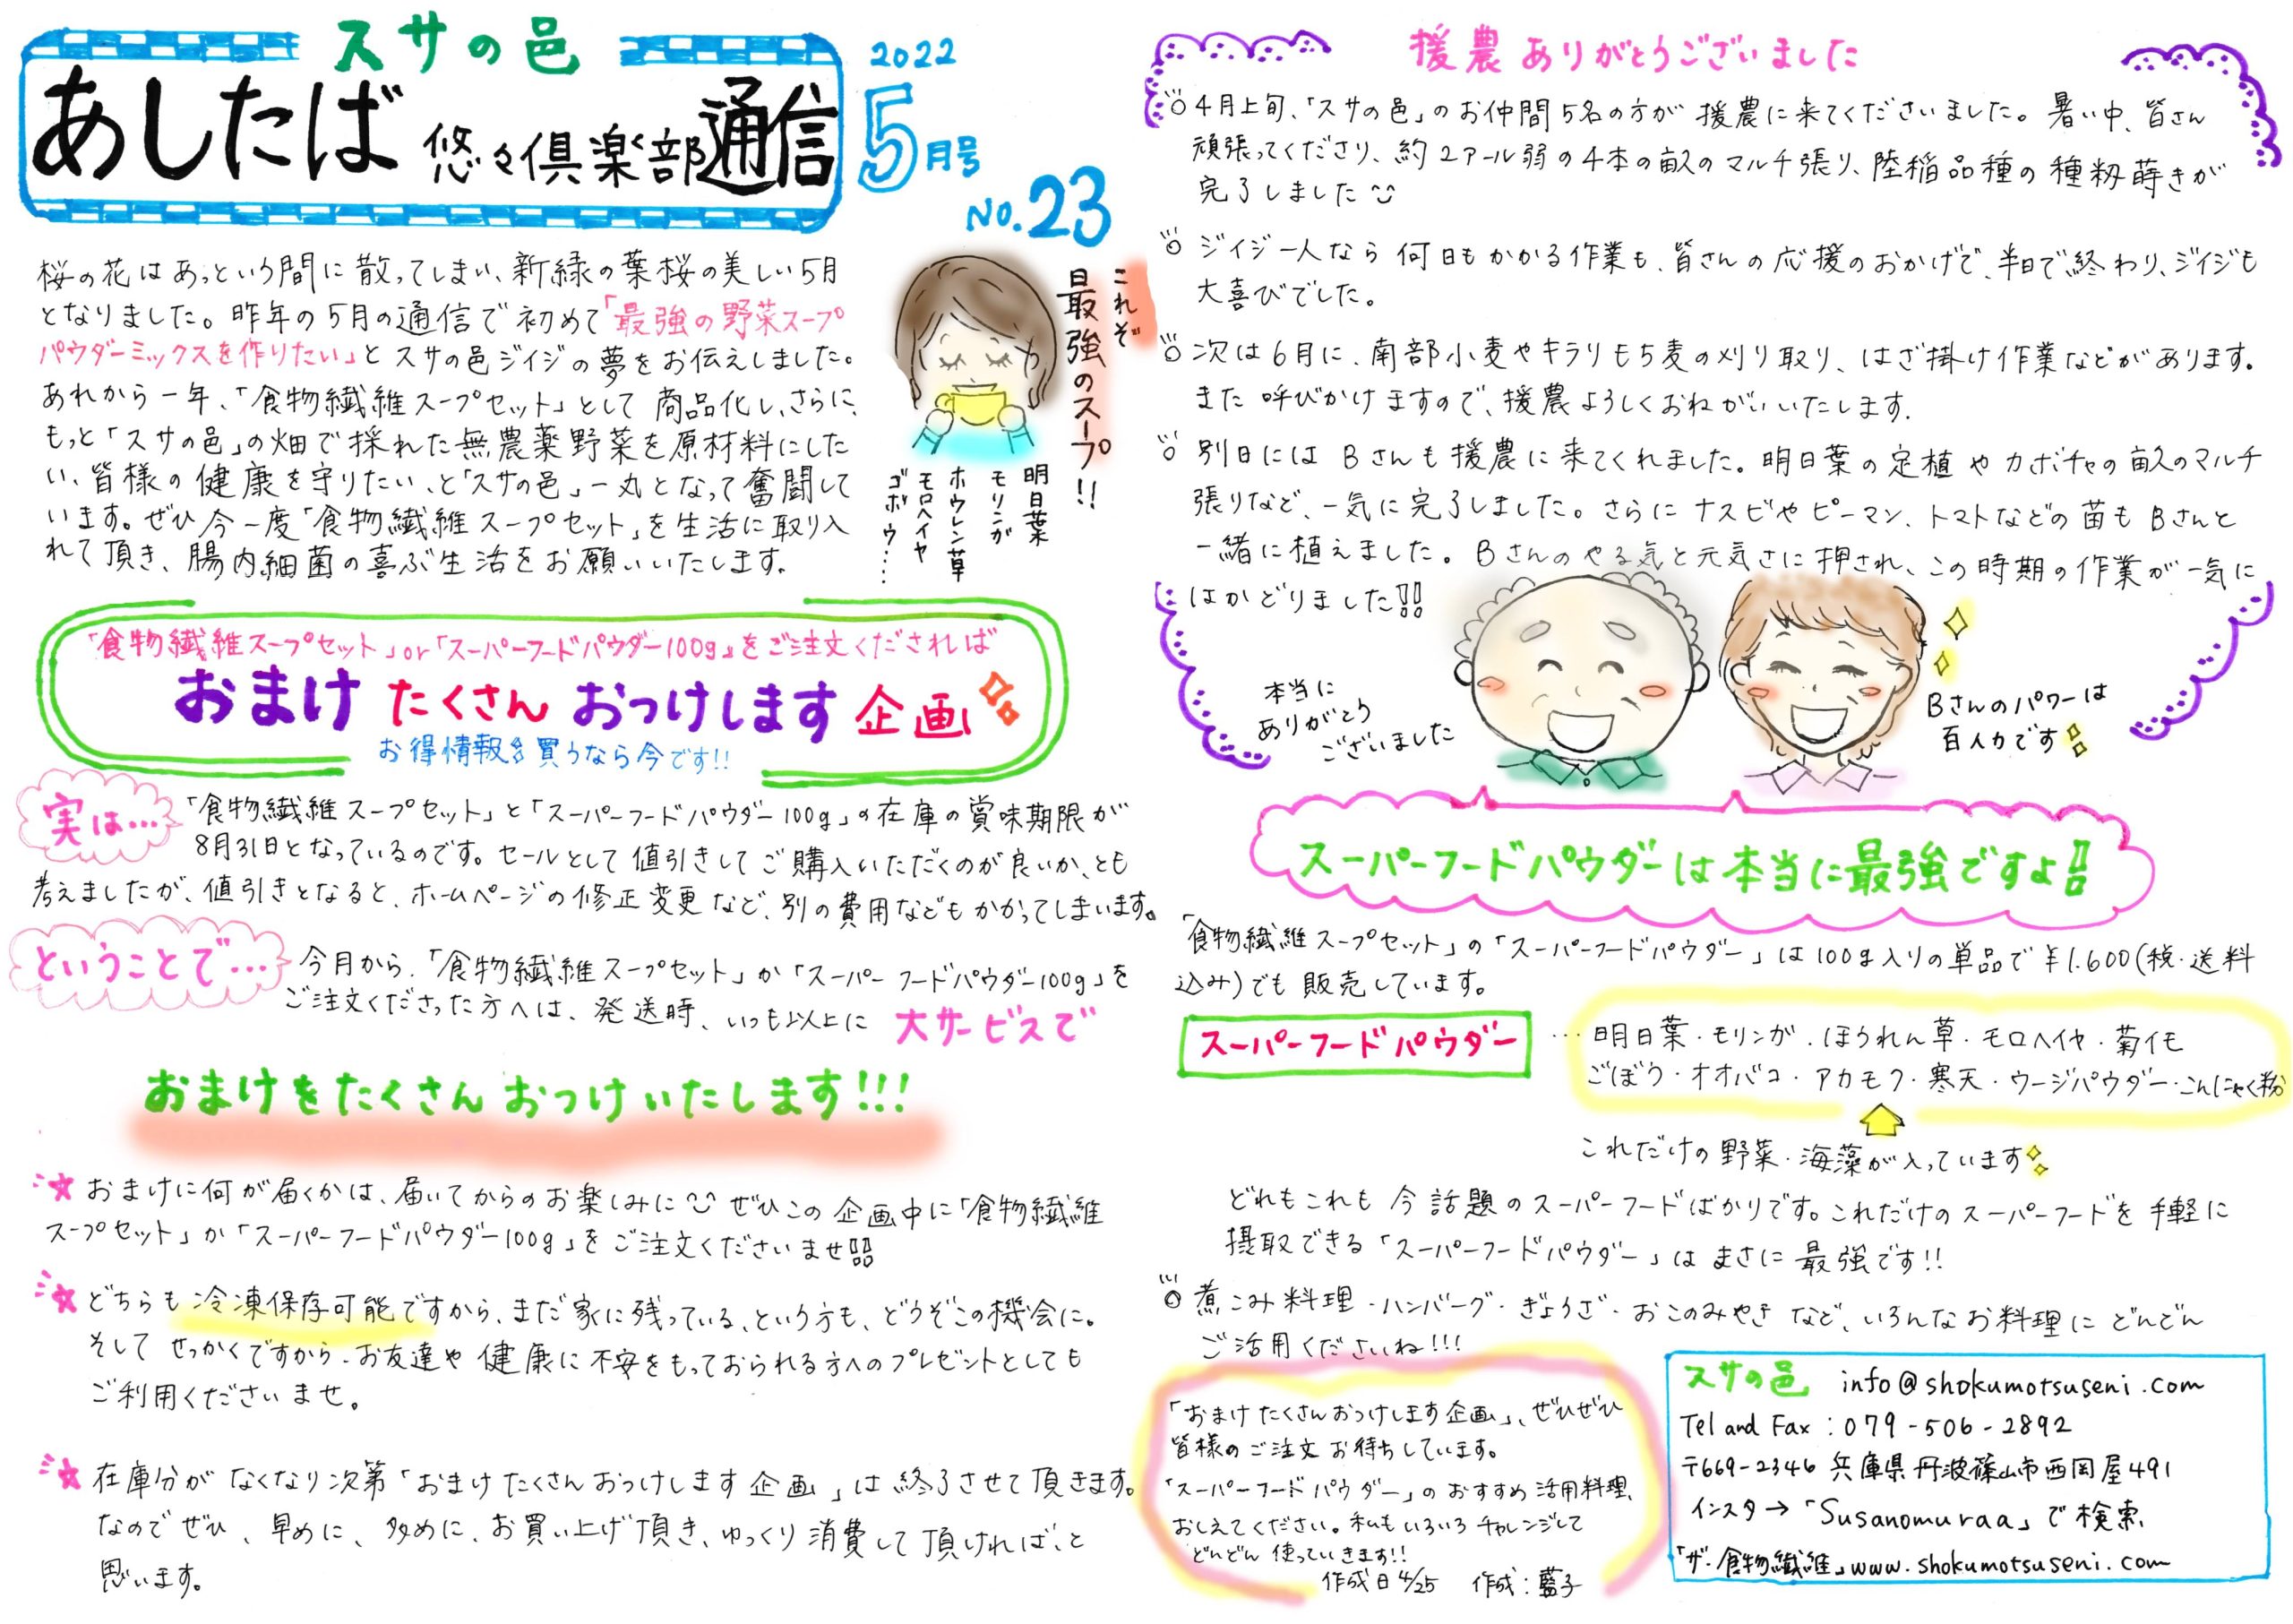 スサの邑
あしたば 悠々倶楽部通信
2022
5月号
No.23
桜の花はあっという間に散ってしまい、新緑の葉桜の美しい5月
となりました。昨年の5月の通信で初めて「最強の野菜スープ
パウダーミックスを作りたい」とスサの邑ジイジの夢をお伝えしました。
あれから一年、「食物繊維スープセット」として商品化し、さらに、
もっと「スサの邑」の畑で採れた無農薬野菜を原材料にした
い、皆様の健康を守りたい、と「スサの邑」一丸となって奮闘して
います。ぜひ今一度「食物繊維スープセット」を生活に取り入
れて頂き、腸内細菌の喜ぶ生活をお願いいたします。
これぞ
最強のスープ!!
明日葉
モリンガ
ホウレン草
モロヘイヤ
ゴボウ……
「食物繊維スープセット」or「スーパーフードパウダー100g」をご注文くだされば
おまけ たくさん おつけします 企画
お得情報 買うなら今です!!
実は…
「食物繊維スープセット」と「スーパーフードパウダー100g」の在庫の賞味期限が
8月31日となっているのです。セールとして値引きしてご購入いただくのが良いか、とも
考えましたが、値引きとなると、ホームページの修正変更など、別の費用などもかかってしまいます。
ということで…
今月から、「食物繊維スープセット」か「スーパーフードパウダー100g」を
ご注文くださった方へは、発送時、いつも以上に 大サービスで
おまけをたくさんおつけいたします!!!
☆おまけに何が届くかは、届いてからのお楽しみに ぜひこの企画中に「食物繊維
スープセット」か「スーパーフードパウダー100g」をご注文くださいませ!!
☆どちらも冷凍保存可能ですから、まだ家に残っている、という方も、どうぞこの機会に。
そしてせっかくですから、お友達や健康に不安をもっておられる方へのプレゼントとしても
ご利用くださいませ。
☆在庫分がなくなり次第「おまけたくさんおつけします企画」は終了させて頂きます。
なのでぜひ、早めに、多めに、お買い上げ頂き、ゆっくり消費して頂ければ、と
思います。
援農ありがとうございました
○4月上旬、「スサの邑」のお仲間5名の方が援農に来てくださいました。暑い中、皆さん
頑張ってくださり、約2アール弱の4本の畝のマルチ張り、陸稲品種の種籾蒔きが
完了しました
○ジイジ一人なら何日もかかる作業も、皆さんの応援のおかげで、半日で終わり、ジイジも
大喜びでした。
○次は6月に、南部小麦やキラリもち麦の刈り取り、はざ掛け作業などがあります。
また呼びかけますので、援農よろしくおねがいいたします。
○別日にはBさんも援農に来てくれました。明日葉の定植やカボチャの畝のマルチ
張りなど、一気に完了しました。さらにナスビやピーマン、トマトなどの苗もBさんと
一緒に植えました。Bさんのやる気と元気さに押され、この時期の作業が一気に
はかどりました!!
本当に
ありがとう
ございました
Bさんのパワーは
百人力です
スーパーフードパウダーは本当に最強ですよ!!
「食物繊維スープセット」の「スーパーフードパウダー」は100g入りの単品で¥1.600(税・送料
込み)でも販売しています。
スーパーフードパウダー
…明日葉・モリンガ・ほうれん草・モロヘイヤ・菊イモ
ごぼう・オオバコ・アカモク・寒天・ウージパウダー・こんにゃく粉
これだけの野菜・海藻が入っています
どれもこれも今話題のスーパーフードばかりです。これだけのスーパーフードを手軽に
摂取できる「スーパーフードパウダー」はまさに最強です!!
○煮こみ料理・ハンバーグ・ぎょうざ・おこのみやきなど、いろんなお料理にどんどん
ご活用くださいね!!!
「おまけたくさんおつけします企画」、ぜひぜひ
皆様のご注文お待ちしています。
「スーパーフードパウダー」のおすすめ活用料理、
おしえてください。私もいろいろチャレンジして
どんどん使っていきます!!
作成日4/25 作成:藍子
スサの邑 info@shokumotsuseni.com
Tel and Fax:079-506-2892
〒669-2346 兵庫県丹波篠山市西岡屋491
インスタ→「Susanomuraa」で検索
「ザ・食物繊維」www.shokumotsuseni.com